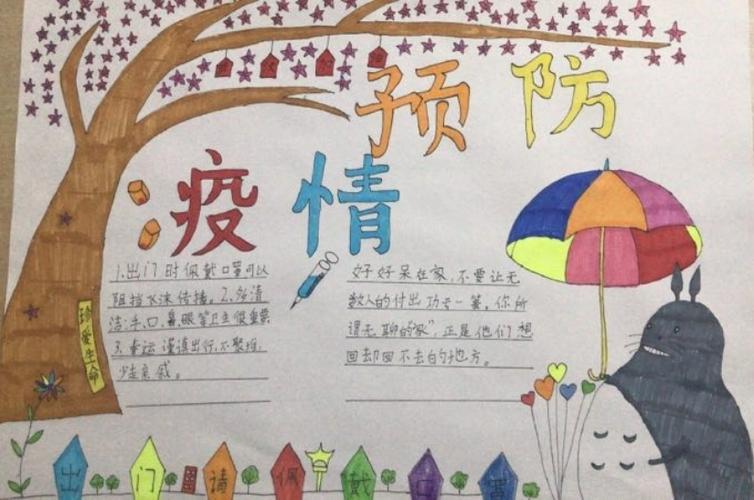 预防
疫情
1.出门时佩戴口罩可以
阻挡飞沫传播。2.多清
洁:手、口、鼻、眼等卫生很重要
3.春运谨慎出行,不聚堆,
少走亲戚。
好好呆在家,不要让无
数人的付出功亏一篑。你所
谓无聊的“家”,正是他们想
回却回不去的地方。
珍爱生命
出门请佩戴口罩